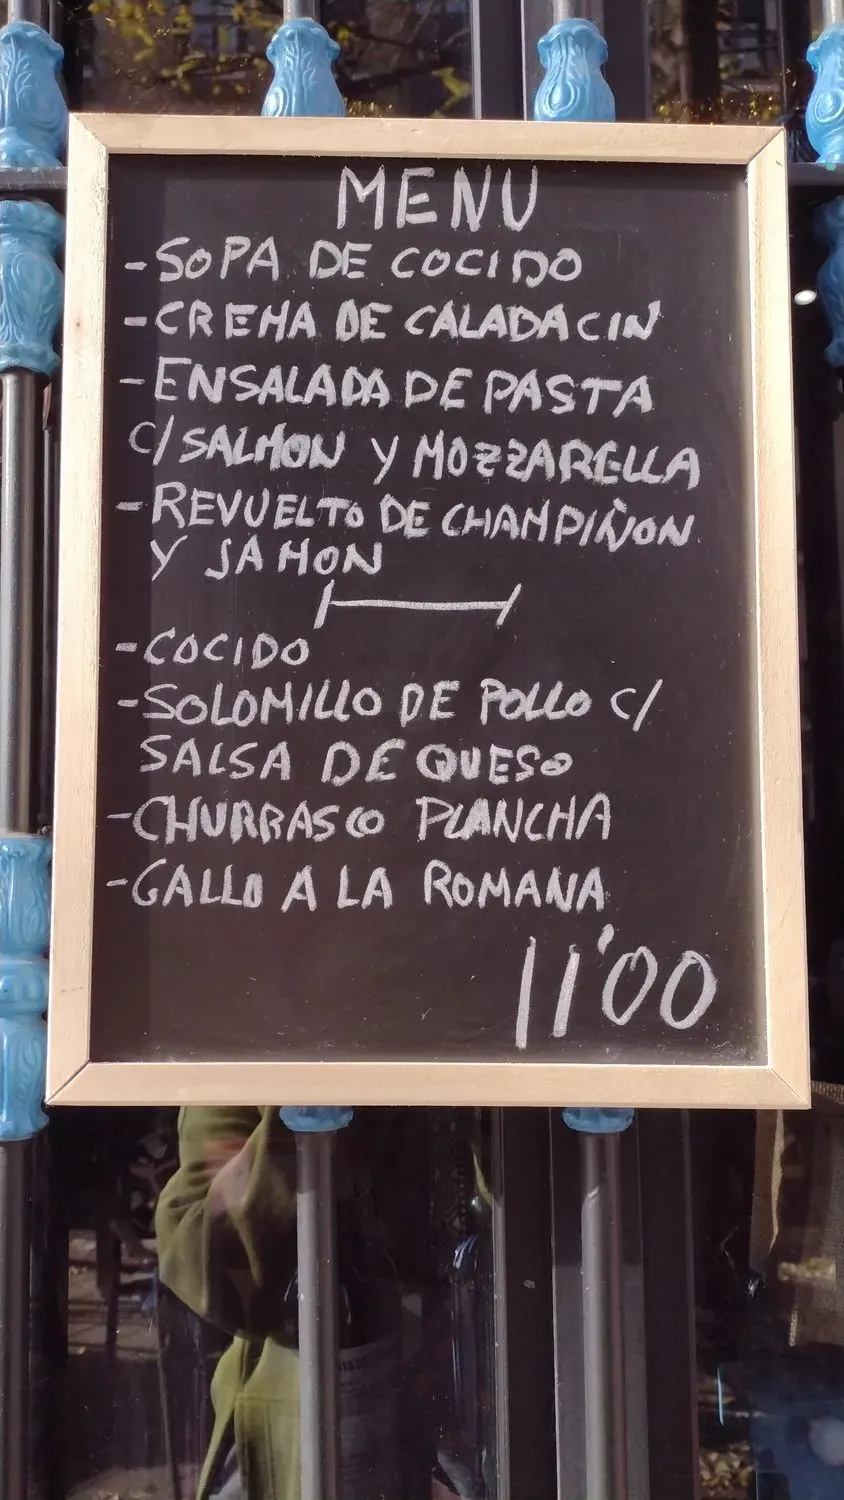 MENU
-SOPA DE COCIDO
-CREMA DE CALADACIN
-ENSALADA DE PASTA
C/SALMON Y MOZZARELLA
-REVUELTO DE CHAMPIÑON
Y JAMON
-COCIDO
-SOLOMILLO DE POLLO C/
SALSA DE QUESO
-CHURRASCO PLANCHA
-GALLO A LA ROMANA
11'00